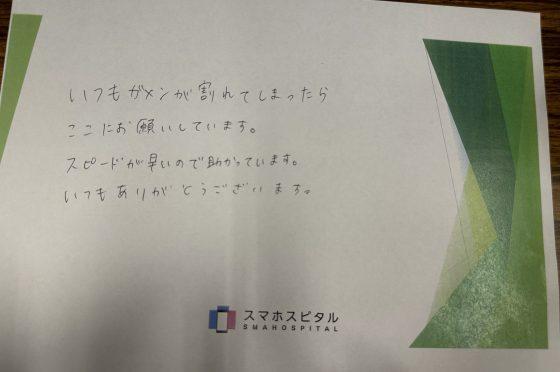 いつもガメンが割れてしまったら
ここにお願いしています。
スピードが早いので助かっています。
いつもありがとうございます。
スマホスピタル
SMAHOSPITAL